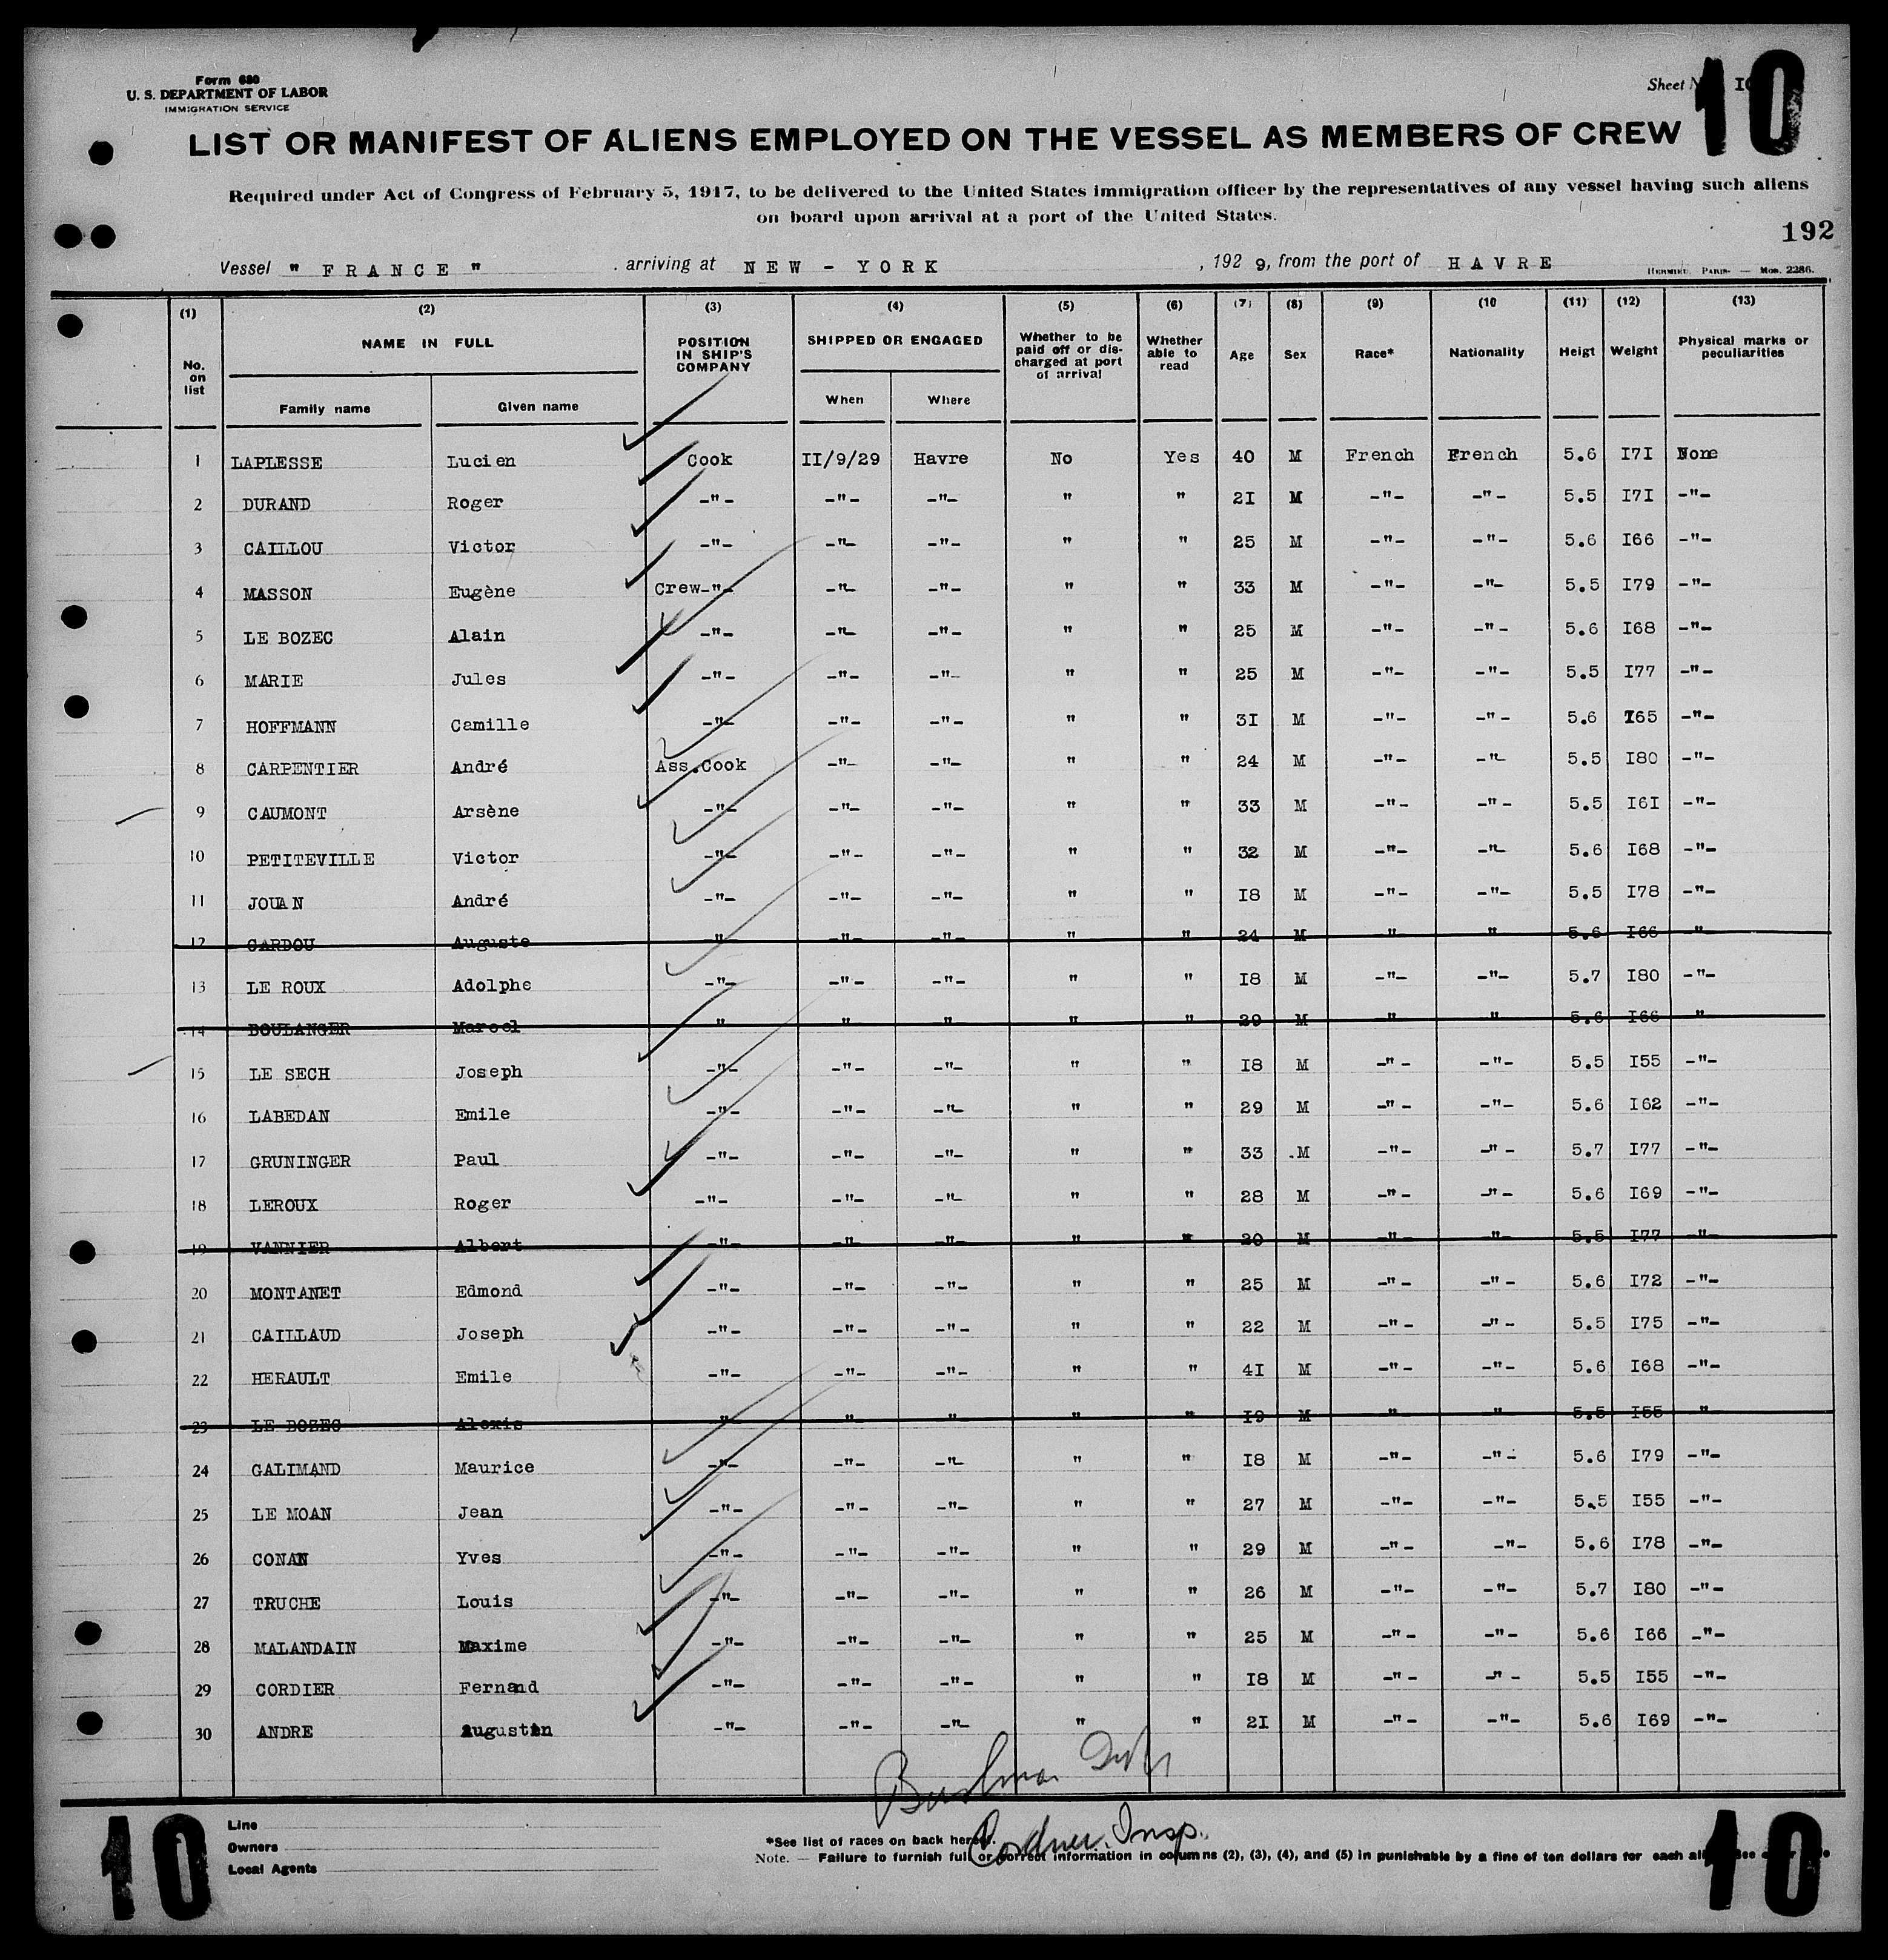 Form 680
U. S. DEPARTMENT OF LABOR
IMMIGRATION SERVICE
Sheet
10
LIST OR MANIFEST OF ALIENS EMPLOYED ON THE VESSEL AS MEMBERS OF CREW
Required under Act of Congress of February 5, 1917, to be delivered to the United States immigration officer by the representatives of any vessel having such aliens
on board upon arrival at a port of the United States.
192
Vessel " FRANCE " . arriving at NEW - YORK , 192 9, from the port of HAVRE
PARIS — Mod. 2286.
(1) (2) (3) (4) (5) (6) (7) (8) (9) (10 (11) (12) (13)
No. on list NAME IN FULL POSITION IN SHIP'S COMPANY SHIPPED OR ENGAGED Whether to be paid off or discharged at port of arrival Whether able to read Age Sex Race* Nationality Heigt Weight Physical marks or peculiarities
Family name Given name When Where
1 LAPLESSE Lucien Cook II/9/29 Havre No Yes 40 M French French 5.6 I7I None
2 DURAND Roger -"- -"- -"- " " 2I M -"- -"- 5.5 I7I -"-
3 CAILLOU Victor -"- -"- -"- " " 25 M -"- -"- 5.6 I66 -"-
4 MASSON Eugène Crew-"- -"- -"- " " 33 M -"- -"- 5.5 I79 -"-
5 LE BOZEC Alain -"- -"- -"- " " 25 M -"- -"- 5.6 I68 -"-
6 MARIE Jules -"- -"- -"- " " 25 M -"- -"- 5.5 I77 -"-
7 HOFFMANN Camille -"- -"- -"- " " 3I M -"- -"- 5.6 I65 -"-
8 CARPENTIER André Ass.Cook -"- -"- " " 24 M -"- -"- 5.5 I80 -"-
9 CAUMONT Arsène -"- -"- -"- " " 33 M -"- -"- 5.5 I6I -"-
10 PETITEVILLE Victor -"- -"- -"- " " 32 M -"- -"- 5.6 I68 -"-
11 JOUAN André -"- -"- -"- " " I8 M -"- -"- 5.5 I78 -"-
12 CARDOU Auguste -"- -"- -"- " " 24 M -"- -"- 5.6 I66 -"-
13 LE ROUX Adolphe -"- -"- -"- " " I8 M -"- -"- 5.7 I80 -"-
14 BOULANGER Marcel -"- -"- -"- " " 29 M -"- -"- 5.6 I66 -"-
15 LE SECH Joseph -"- -"- -"- " " I8 M -"- -"- 5.5 I55 -"-
16 LABEDAN Emile -"- -"- -"- " " 29 M -"- -"- 5.6 I62 -"-
17 GRUNINGER Paul -"- -"- -"- " " 33 M -"- -"- 5.7 I77 -"-
18 LEROUX Roger -"- -"- -"- " " 28 M -"- -"- 5.6 I69 -"-
19 VANNIER Albert -"- -"- -"- " " 30 M -"- -"- 5.5 I77 -"-
20 MONTANET Edmond -"- -"- -"- " " 25 M -"- -"- 5.6 I72 -"-
21 CAILLAUD Joseph -"- -"- -"- " " 22 M -"- -"- 5.5 I75 -"-
22 HERAULT Emile -"- -"- -"- " " 4I M -"- -"- 5.6 I68 -"-
23 LE BOZEC Alexis -"- -"- -"- " " I9 M -"- -"- 5.5 I55 -"-
24 GALIMAND Maurice -"- -"- -"- " " I8 M -"- -"- 5.6 I79 -"-
25 LE MOAN Jean -"- -"- -"- " " 27 M -"- -"- 5.5 I55 -"-
26 CONAN Yves -"- -"- -"- " " 29 M -"- -"- 5.6 I78 -"-
27 TRUCHE Louis -"- -"- -"- " " 26 M -"- -"- 5.7 I80 -"-
28 MALANDAIN Maxime -"- -"- -"- " " 25 M -"- -"- 5.6 I66 -"-
29 CORDIER Fernand -"- -"- -"- " " I8 M -"- -"- 5.5 I55 -"-
30 ANDRE Augustin -"- -"- -"- " " 2I M -"- -"- 5.6 I69 -"-
Insp.
Line
Owners
Local Agents
*See list of races on back hereof.
Note. — Failure to furnish full or correct information in columns (2), (3), (4), and (5) in punishable by a fine of ten dollars for each
10
10